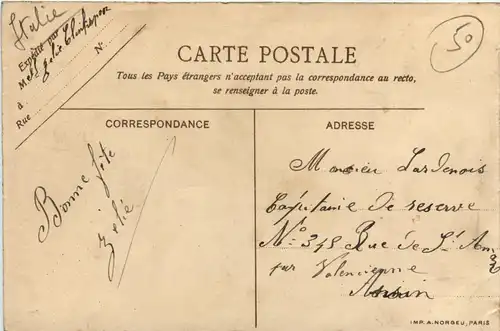 Italie
50
Expédié par
M
N°
à
Rue
CARTE POSTALE
Tous les Pays étrangers n'acceptant pas la correspondance au recto,
se renseigner à la poste.
CORRESPONDANCE
ADRESSE
Bonne fête
Zelié
Monsieur Lardenois
Capitaine de reserve
N° 345 Rue de St Am
par Valencienne
Ansin
IMP. A. NORGEU, PARIS